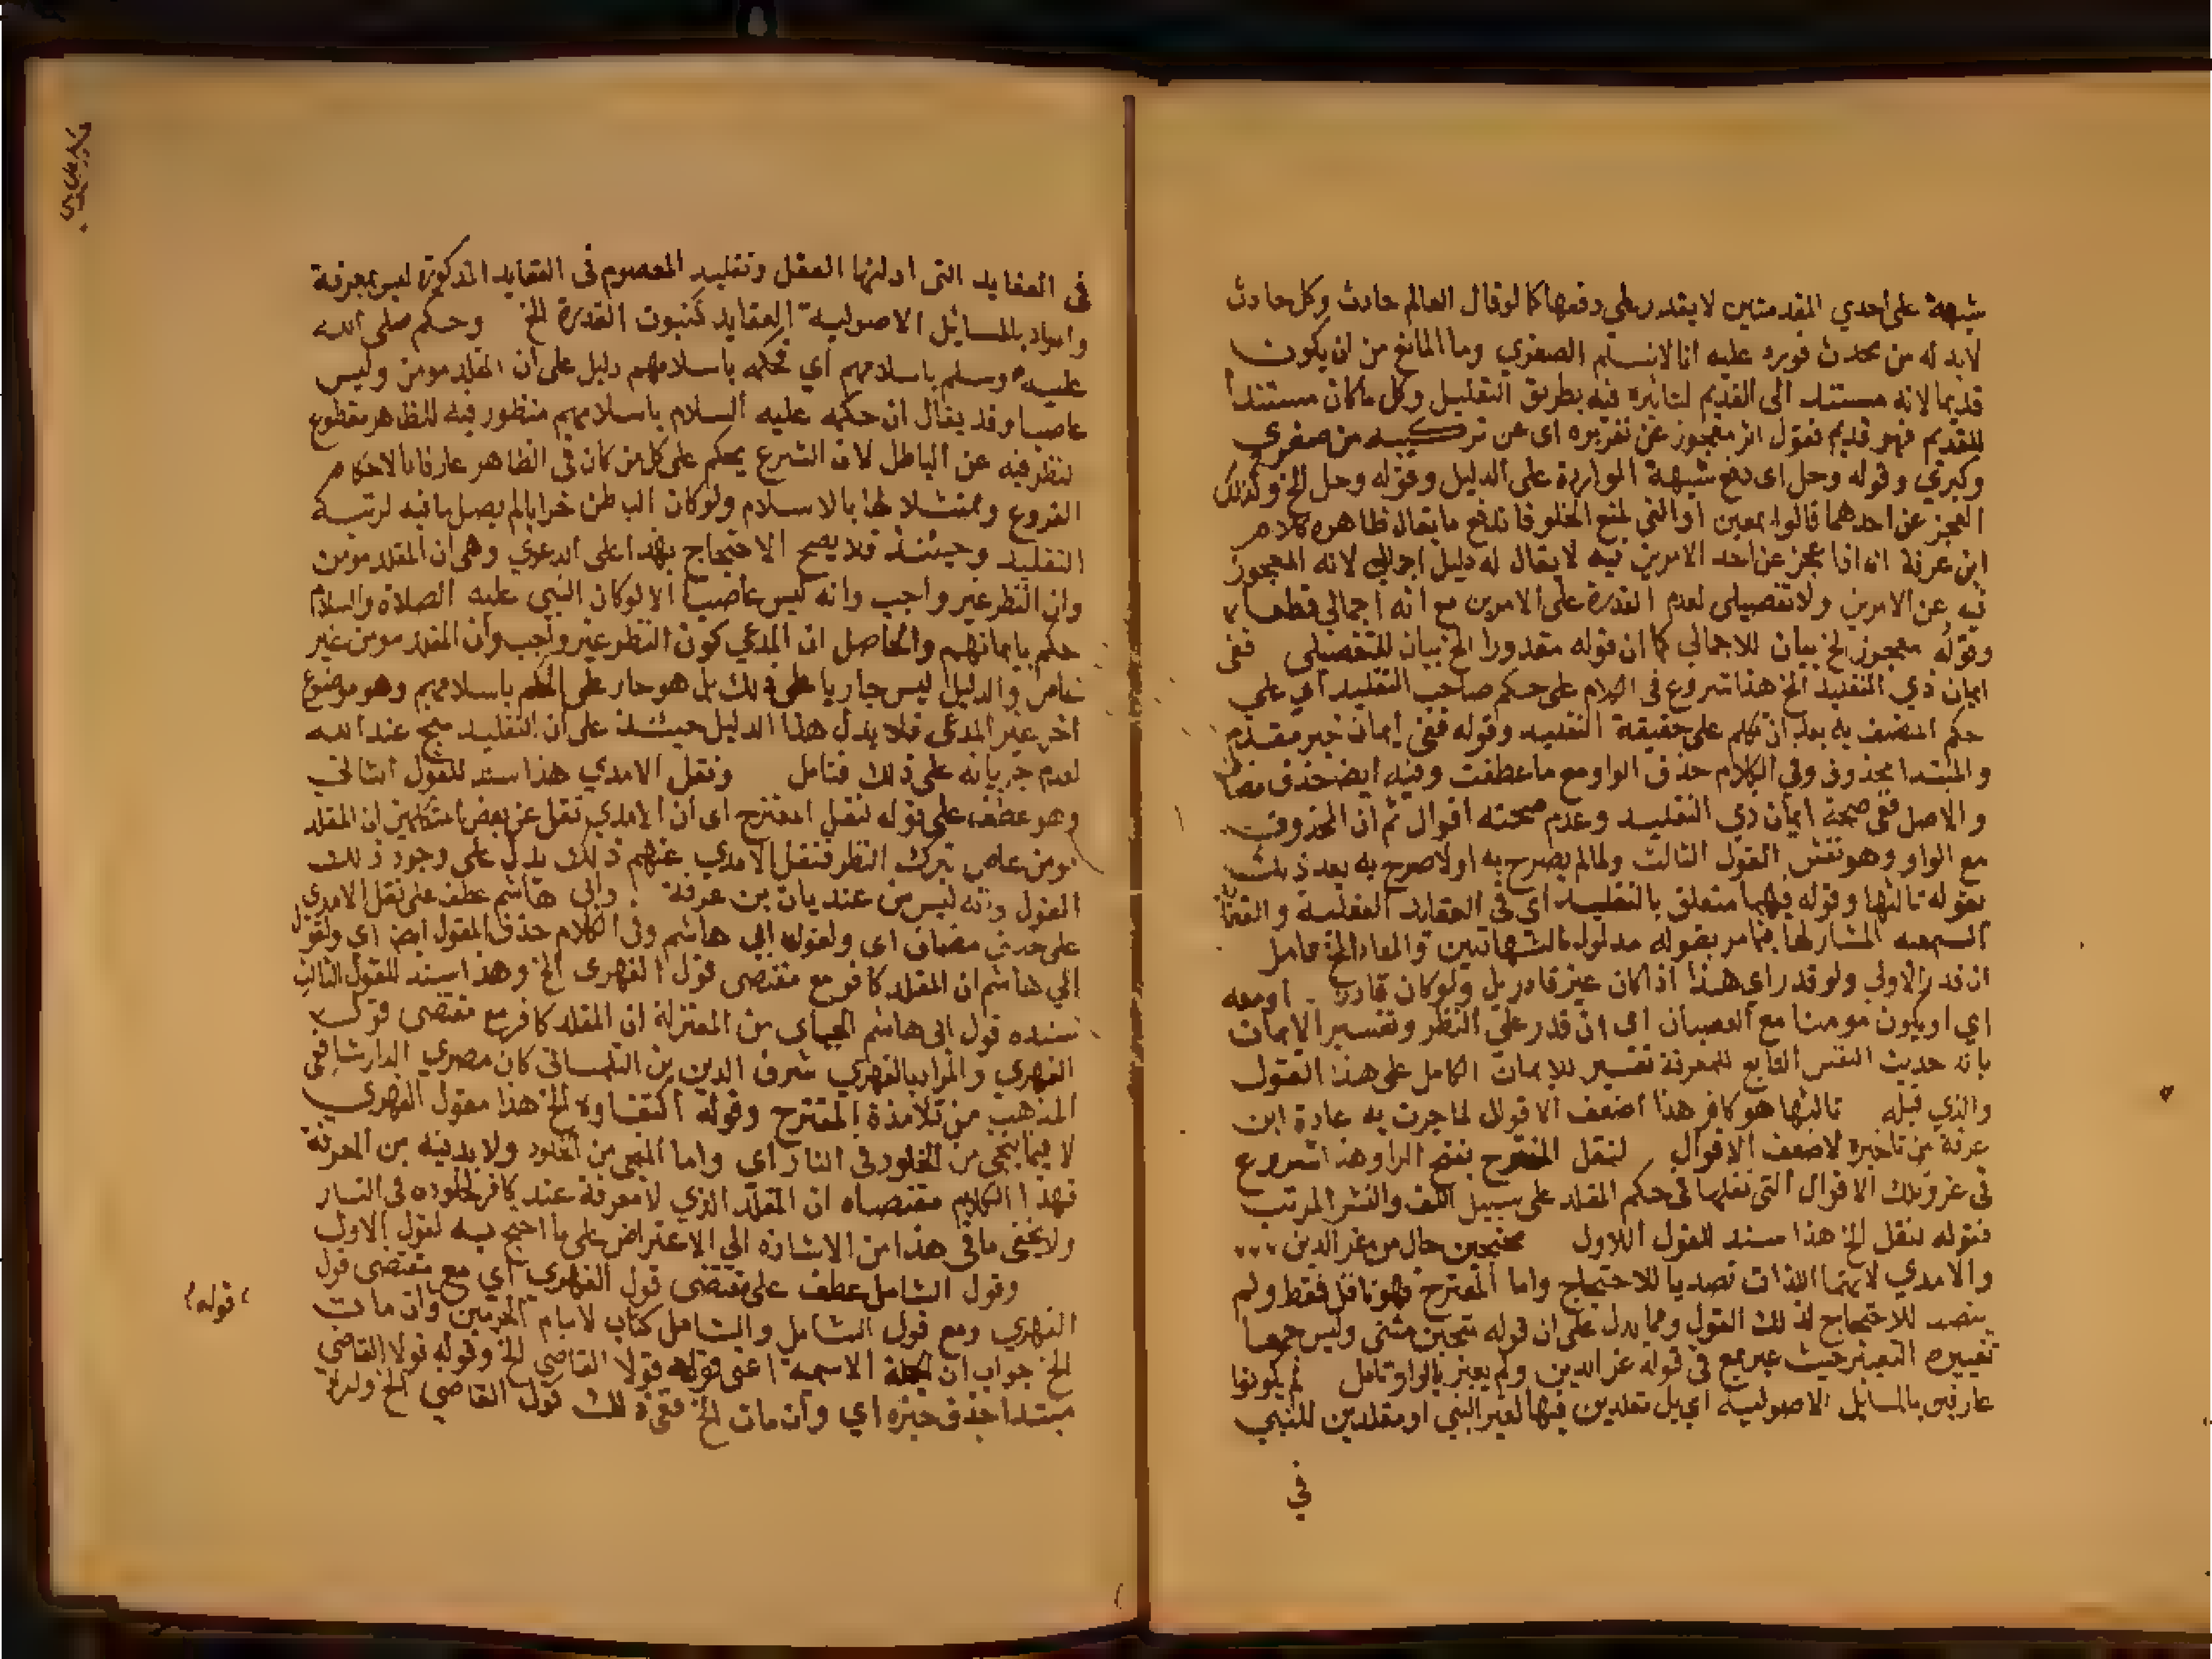 شبهة على احدي المقدمتين لا يقدر على دفعها كما لو قال العالم حادث وكل حادث
لابد له من محدث فورد عليه انا لا نسلم الصغري وما المانع من ان يكون
قديما لانه مستند الى القديم لتاثيره فيه بطريق التعليل وكل ما كان مستندا
للقديم فهو قديم فقول معجوز عن تقريره اى عن تركيبه من صغري
وكبري وقوله وحل اى دفع شبهة الواردة على الدليل وقوله وحل الخ وكذلك
العجز عن احدهما قالوا بمعين او التي لمنع الخلو فاندفع ما يقال ظاهره كلام
ابن عرفة انه اذا عجز عن احد الامرين فيه لا يقال له دليل اجمالي لانه المعجوز
فيه عن الامرين ولا تفصيلى لعدم القدرة على الامرين مع انه اجمالى قطعا
وقوله معجوز الخ بيان للاجمالي كما ان قوله مقدورا الخ بيان للتفصيلى ففى
ايمان ذي التقليد الخ هذا شروع فى الكلام على حكم صاحب التقليد اي على
حكم المتصف به بعد ان تكلم على حقيقة التقليد وقوله ففى ايمان خبر مقدم
والمبتدا محذوف وفي الكلام حذف الواو مع ما عطفت وفيه ايضا حذف مضاف
والاصل ففى صحة ايمان ذي التقليد وعدم صحته اقوال ثم ان المحذوفة
مع الواو وهو نفس القول الثالث ولما لم يصرح به اولا صرح به بعد ذلك
بقوله ثالثها وقوله فيهما متعلق بالتقليد اي فى العقايد العقلية والعقايد
السمعية المشار لها فيما مر بقوله مدلول الشهادتين والمعاد الخ تامل
ان قدر الاولى ولو قدر اى هذا اذا كان غير قادر بل ولو كان قادرا او معه
اي او يكون مومنا مع العصيان اى ان قدر على النظر وتفسير الايمان
بانه حديث النفس التابع للمعرفة تفسير للايمان الكامل على هذا القول
والذي قبله ثالثها هو كافر هذا اضعف الاقوال لما جرت به عادة ابن
عرفة من تاخيره لاضعف الاقوال لنقل المقترح بفتح الراء وهذا شروع
فى عزو تلك الاقوال التى نقلها فى حكم المقلد على سبيل اللف والنشر المرتب
فقوله لنقل الخ هذا سند للقول الاول محتجين حال من عز الدين
والامدي لانهما اللذان تصديا للاحتجاج واما المقترح فهو ناقل فقط ولم
يتصد للاحتجاج لذلك القول ومما يدل على ان قوله محتجين مثنى وليس جمعا
تغييره التعبير حيث عبر مع فى قوله عز الدين ولم يعبر بالواو تامل لم يكونوا
عارفين بالمسايل الاصولية اي بل مقلدين فيها لغير النبي او مقلدين للنبي
في
فى العقايد التى ادلتها العقل وتقليد المعصوم فى العقايد المذكورة ليس بمعرفة
والمراد بالمسائل الاصولية العقايد كثبوت القدرة الخ وحكم صلى الله
عليه وسلم باسلامهم اي فحكمه باسلامهم دليل على ان المقلد مومن وليس
عاصيا وقد يقال ان حكمه عليه السلام باسلامهم منظور فيه للظاهر مقطوع
النظر فيه عن الباطل لان الشرع يحكم على كل من كان فى الظاهر عارفا بالاحكام
الفروع وممتثلا لها بالاسلام ولو كان الباطن خرابا لم يصل ما فيه لرتبة
التقليد وحينئذ فلا يصح الاحتجاج بهذا على الدعوي وهى ان المقلد مومن
وان النظر غير واجب وانه ليس عاصيا الا لو كان النبي عليه الصلاة والسلام
حكم بايمانهم والحاصل ان المدعي كون النظر غير واجب وان المقلد مومن غير
عاص والدليل ليس جاريا على ذلك بل هو جار على الحكم باسلامهم وهو موضوع
اخر غير المدعى فلا يدل هذا الدليل حينئذ على ان التقليد صحيح عند الله
لعدم جريانه على ذلك فتامل ونقل الامدي هذا سند للقول الثاني
وهو عطف على قوله لنقل المقترح اى ان الامدي نقل عن بعض المتكلمين ان المقلد
مومن عاص بترك النظر فنقل الامدي عنهم ذلك يدل على وجود ذلك
القول وانه ليس من عنديات بن عرفة وابى هاشم عطف على نقل الامدي
على حذف مضاف اى ولقول ابى هاشم وفى الكلام حذف المقول ايضا اي ولقول
ابي هاشم ان المقلد كافر مع مقتضى قول الفهرى الخ وهذا سند للقول الثالث
سنده قول ابى هاشم الجباى من المعتزلة ان المقلد كافر مع مقتضى قول
الفهري والمراد بالفهري شرف الدين بن التلمساني كان مصري الدار شافعى
المذهب من تلامذة المقترح وقوله الخ هذا مقول الفهري
لا فيما ينجى من الخلود فى النار اي واما المنجى من الخلود ولا بد فيه من المعرفة
فهذا الكلام مقتضاه ان المقلد الذي لا معرفة عنده كافر لخلوده فى النار
ولا يخفى ما فى هذا من الاشارة الي الاعتراض على ما احتج به لقول الاول
وقول الشامل عطف على مقتضى قول الفهري اي مع مقتضى قول
الفهري ومع قول الشامل والشامل كتاب لامام الحرمين وان مات
الخ جواب ان الجملة الاسمية اعنى قوله قولا القاضي الخ وقوله قولا القاضي
مبتدا حذف خبره اي وان مات الخ ففى ذلك قول القاضي الخ ولم
قوله